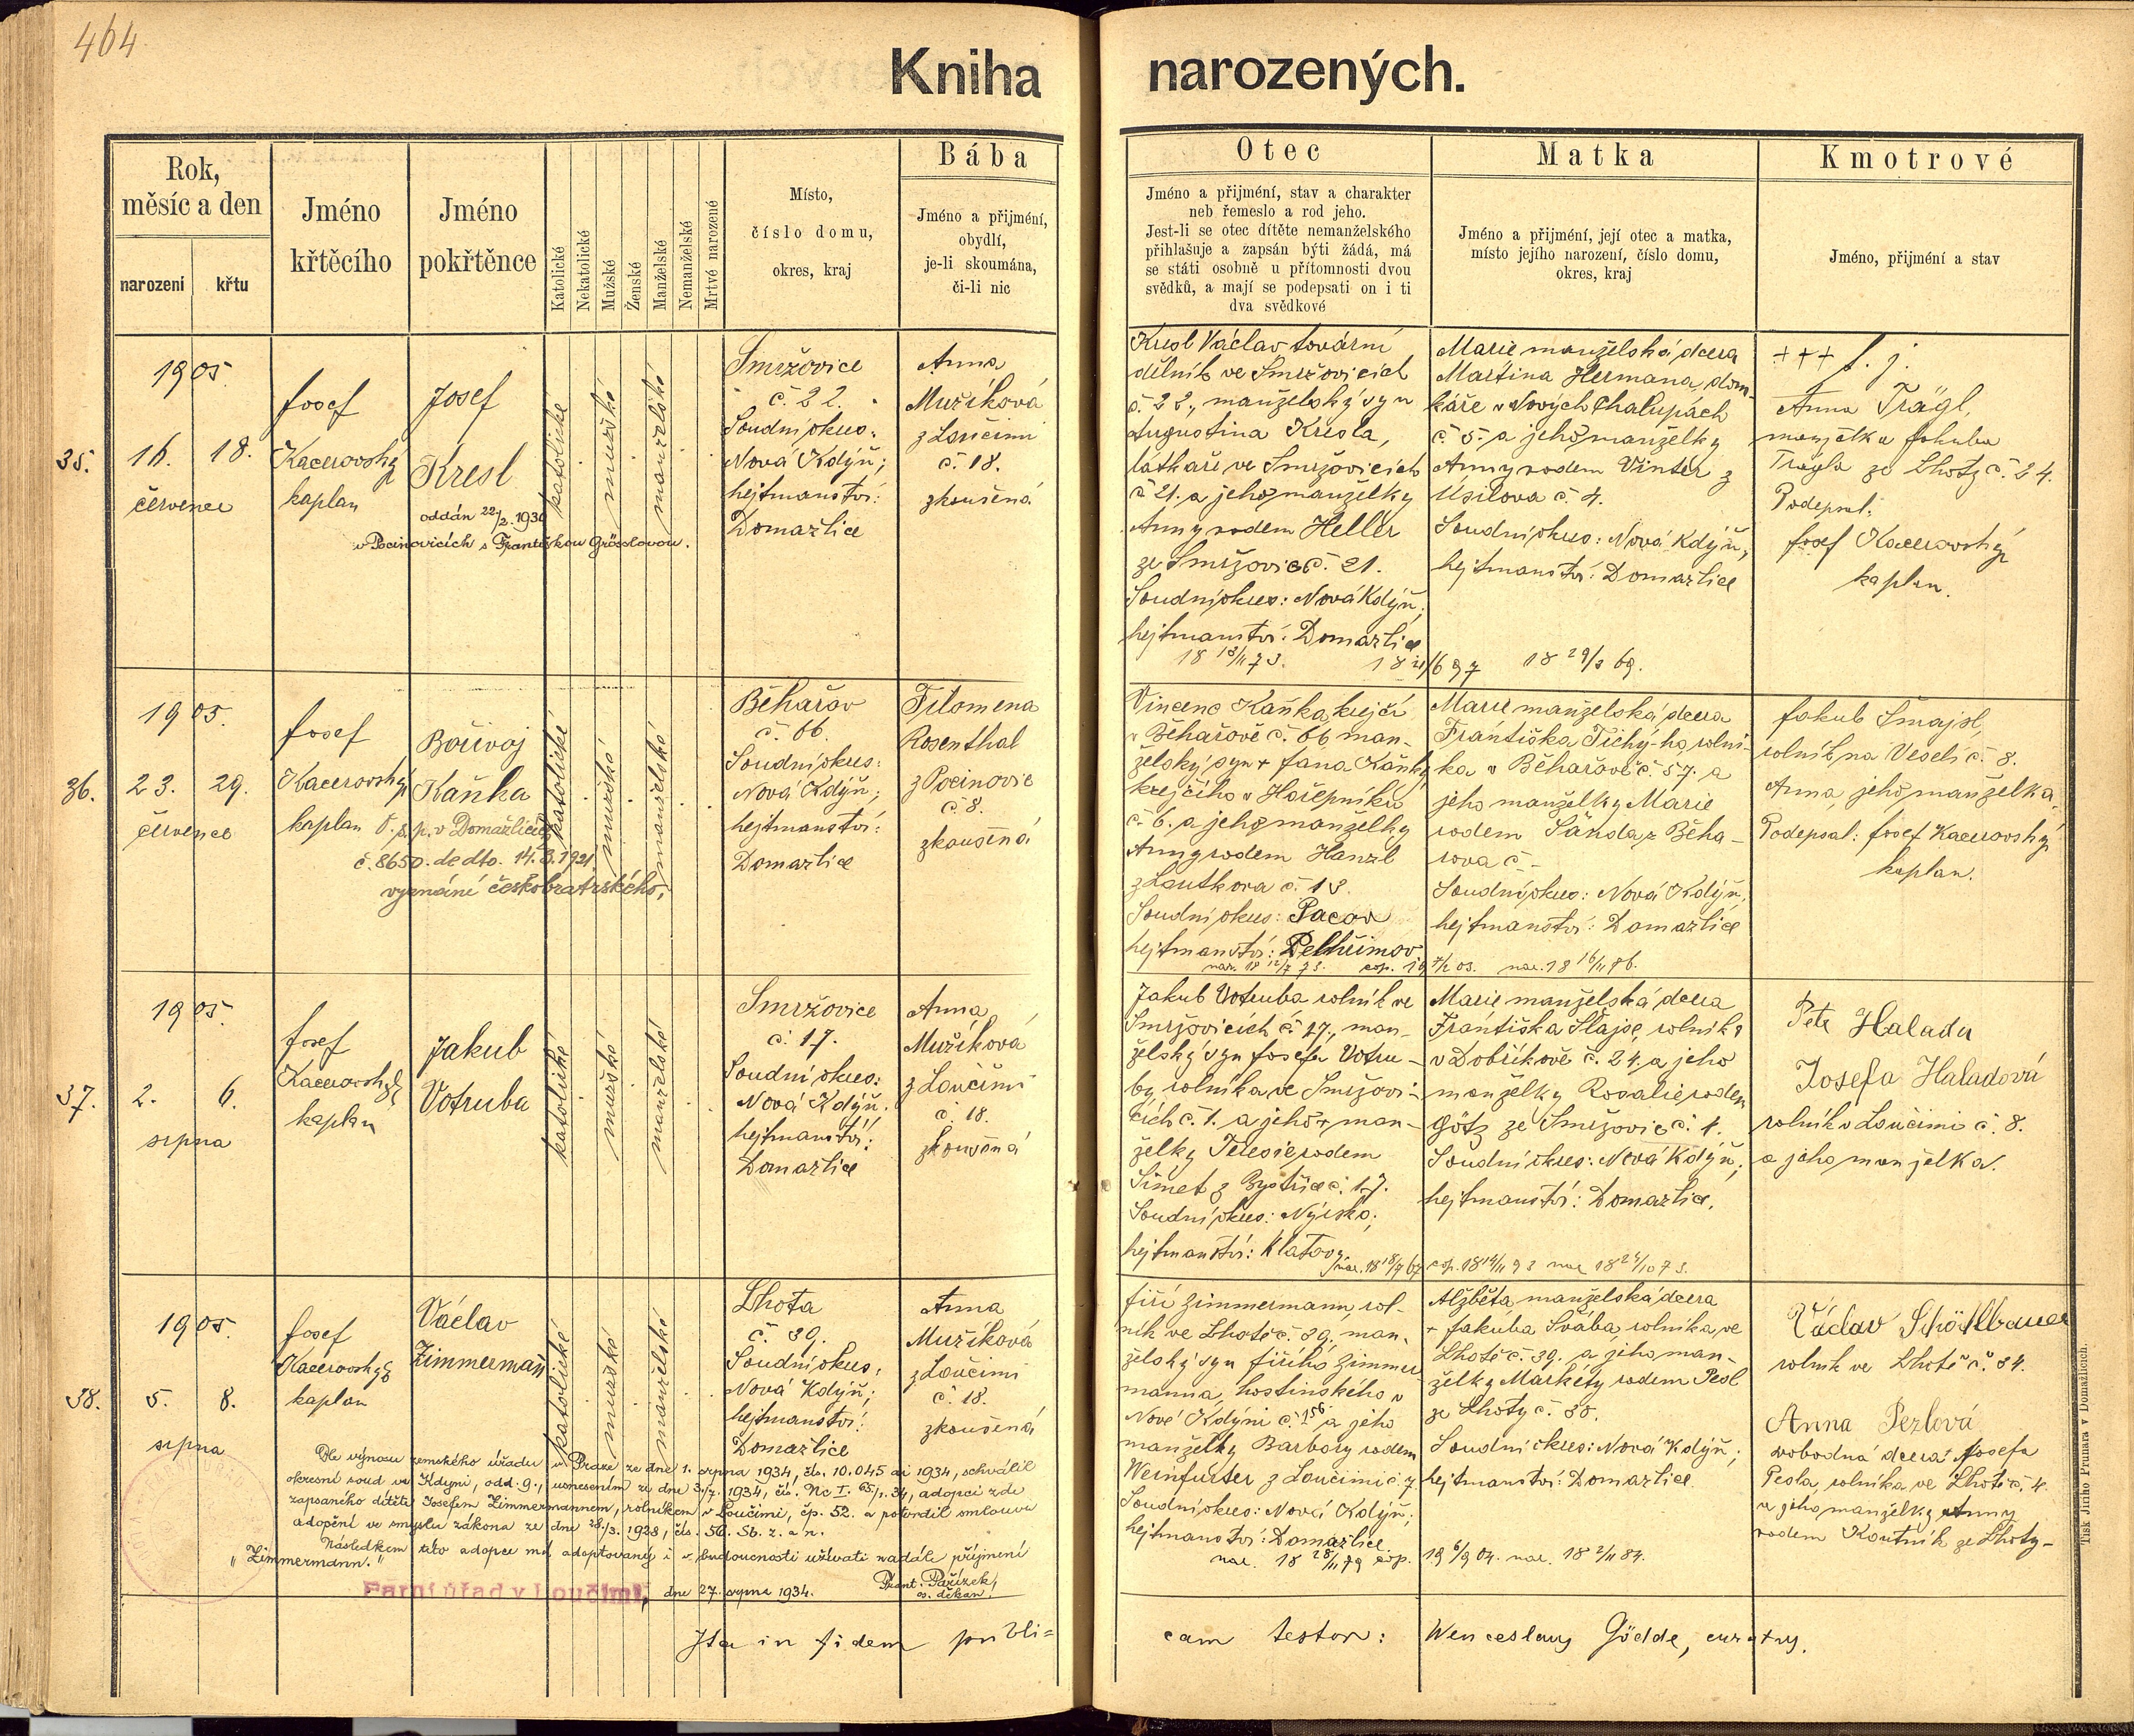 464
Kniha narozených.
Rok,
měsíc a den
narození
křtu
Jméno
křtěcího
Jméno
pokřtěnce
Katolické
Nekatolické
Mužské
Ženské
Manželské
Nemanželské
Mrtvé narozené
Místo,
číslo domu,
okres, kraj
Bába
Jméno a přijmení,
obydlí,
je-li skoumána,
či-li nic
Otec
Jméno a přijmení, stav a charakter
neb řemeslo a rod jeho.
Jest-li se otec dítěte nemanželského
přihlašuje a zapsán býti žádá, má
se státi osobně u přítomnosti dvou
svědků, a mají se podepsati on i ti
dva svědkové
Matka
Jméno a přijmení, její otec a matka,
místo jejího narození, číslo domu,
okres, kraj
Kmotrové
Jméno, přijmení a stav
35.
1905.
16. 18.
červenec
Josef
Kacerovský
kaplan
Josef
Kresl
oddán 22/2. 1930
v Pocinovicích s Františkou Grösslovou.
katolické
mužské
manželské
Smržovice
č. 22.
Soudní okres:
Nová Kdýň;
hejtmanství:
Domažlice
Anna
Mužíková
z Loučimi
č. 18.
zkoušená
Kresl Václav tovární
dělník ve Smržovicích
č. 22., manželský syn
Augustina Kresla,
látkaře ve Smržovicích
č. 21. a jeho manželky
Anny rodem Heller
ze Smržovic č. 21.
Soudní okres: Nová Kdýň;
hejtmanství: Domažlice
Marie manželská dcera
Martina Hermana, dom-
káře v Nových Chalupách
č. 5. a jeho manželky
Anny rodem Vinter z
Úsilova č. 4.
Soudní okres: Nová Kdýň;
hejtmanství: Domažlice
18 29/3 69.
+++ 
Anna Trägl,
manželka Jakuba
Trägla ze Lhoty č. 24.
Podepsal:
Josef Kacerovský
kaplan.
36.
1905.
23. 29.
července
Josef
Kacerovský
kaplan
Bořivoj
Kaňka
O. s. p. v Domažlicích
č. 8650. de dto. 14.3.1921
vyznání českobratrského.
katolické
mužské
manželské
Běhařov
č. 66.
Soudní okres:
Nová Kdýň;
hejtmanství:
Domažlice
Filomena
Rosenthal
z Pocinovic
č. 8.
zkoušená
Vincenc Kaňka, krejčí
v Běhařově č. 66 man-
želský syn + Jana Kaňky
krejčího v Hořepníku
č. 6. a jeho manželky
Anny rodem Hanzl
z Loutkova č. 13.
Soudní okres: Pacov
hejtmanství: Pelhřimov
nar. 18 12/7 73. cop. 19 7/2 03.
Marie manželská dcera
Františka Tichý-ho, rolní-
ka v Běhařově č. 57. a
jeho manželky Marie
rodem Šanda z Běha-
řova č -
Soudní okres: Nová Kdýň,
hejtmanství: Domažlice
nar. 18 16/11 76.
Jakub Šmajsl,
rolník na Veselí č. 8.
Anna, jeho manželka.
Podepsal: Josef Kacerovský
kaplan.
37.
1905.
2. 6.
srpna
Josef
Kacerovský
kaplan
Jakub
Votruba
katolické
mužské
manželské
Smržovice
č. 17.
Soudní okres:
Nová Kdýň.
hejtmanství:
Domažlice
Anna
Mužíková
z Loučimi
č. 18.
zkoušená
Jakub Votruba rolník ve
Smržovicích č. 17., man-
želský syn Josefa Votru-
by, rolníka ve Smržovi-
cích č. 1. a jeho + man-
želky Terezie rodem
Šimet z Bystřice č. 17.
Soudní okres: Nýrsko;
hejtmanství: Klatovy
nar. 18 18/7 67 cop. 18 14/11 93
Marie manželská dcera
Františka Šlajse, rolníka
v Dobříkově č. 24. a jeho
manželky Rosalie rodem
Götz ze Smržovic č. 1.
Soudní okres: Nová Kdýň;
hejtmanství: Domažlice.
nar 18 24/10 73.
Petr Halada
Josefa Haladová
rolník v Loučimi č. 8.
a jeho manželka.
38.
1905.
5. 8.
srpna
Josef
Kacerovský
kaplan
Václav
Zimmermann
katolické
mužské
manželské
Lhota
č. 39.
Soudní okres:
Nová Kdýň;
hejtmanství:
Domažlice
Anna
Mužíková
z Loučimi
č. 18.
zkoušená
Jiří Zimmermann, rol-
ník ve Lhotě č. 39. man-
želský syn Jiřího Zimmer
manna, hostinského v
Nové Kdýni č. 156 a jeho
manželky Barbory rodem
Weinfurter z Loučimi č. 7.
Soudní okres: Nová Kdýň;
hejtmanství: Domažlice.
nar. 18 28/11 79 cop. 19 6/9 04.
Alžběta manželská dcera
+ Jakuba Švába, rolníka ve
Lhotě č. 39. a jeho man-
želky Markéty rodem Pesl
ze Lhoty č. 35.
Soudní okres: Nová Kdýň;
hejtmanství: Domažlice
nar. 18 2/11 84.
Václav Schötlbauer
rolník ve Lhotě č. 34.
Anna Pezlová
svobodná dcera Josefa
Pesla, rolníka ve Lhotě č. 4.
a jeho manželky Anny
rodem Koutník ze Lhoty-
Dle výnosu zemského úřadu v Praze ze dne 1. srpna 1934, čís. 10.045 ai 1934, schválil
okresní soud ve Kdyni, odd. 9., usnesením ze dne 3./7. 1934, čís. Nc I. 65/1. 34, adopci zde
zapsaného dítěte Josefem Zimmermannem, rolníkem v Loučimi, čp. 52. a potvrdil smlouvu
adopční ve smyslu zákona ze dne 28./3. 1928, čís. 56. Sb. z. a n.
Následkem této adopce má adoptovaný i v budoucnosti užívati nadále příjmení
"Zimmermann."
Farní úřad v Loučimi, dne 27. srpna 1934.
Frant. Pařízek,
os. děkan.
Ita in fidem publi=
cam testor: Wenceslaus Gödde, curatus.
Tisk Jiřího Prunara v Domažlicích.